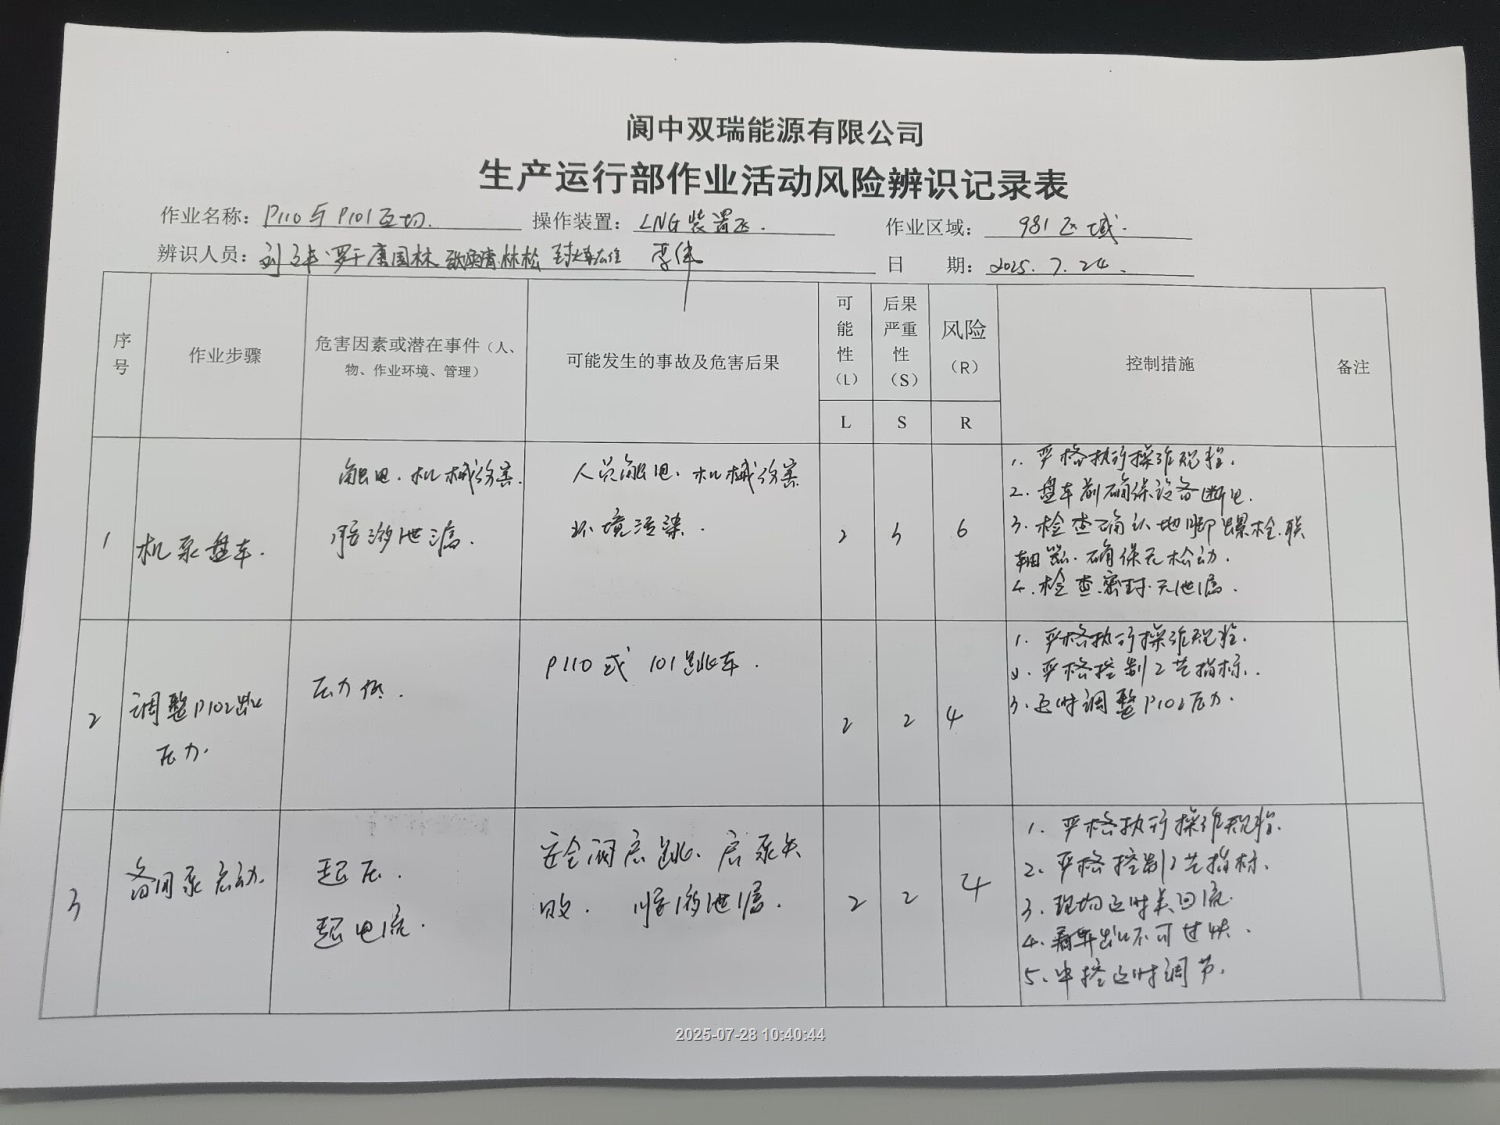 阆中双瑞能源有限公司
生产运行部作业活动风险辨识记录表
作业名称: P110与P101互切. 操作装置: LNG装置区. 作业区域: 981区域.
辨识人员: 罗 唐国林 林松 李伟 日 期: 2025.7.24.
序号 作业步骤 危害因素或潜在事件(人、物、作业环境、管理) 可能发生的事故及危害后果 可能性(L) 后果严重性(S) 风险(R) 控制措施 备注
L S R
1 机泵盘车.
触电、机械伤害.
胺液泄漏.
人员触电、机械伤害
环境污染.
2 3 6
1. 严格执行操作规程.
2. 盘车前确保设备断电.
3. 检查确认地脚螺栓、联
轴器、确保无松动.
4. 检查密封无泄漏.
2 调整P102出口
压力.
压力低.
P110或101跳车.
2 2 4
1. 严格执行操作规程.
2. 严格控制工艺指标.
3. 及时调整P102压力.
3 备用泵启动.
超压.
超电流.
安全阀启跳、启泵失
败. 胺液泄漏.
2 2 4
1. 严格执行操作规程.
2. 严格控制工艺指标.
3. 现场及时关回流.
4. 出口不可过快.
5. 中控及时调节.
2025-07-28 10:40:44